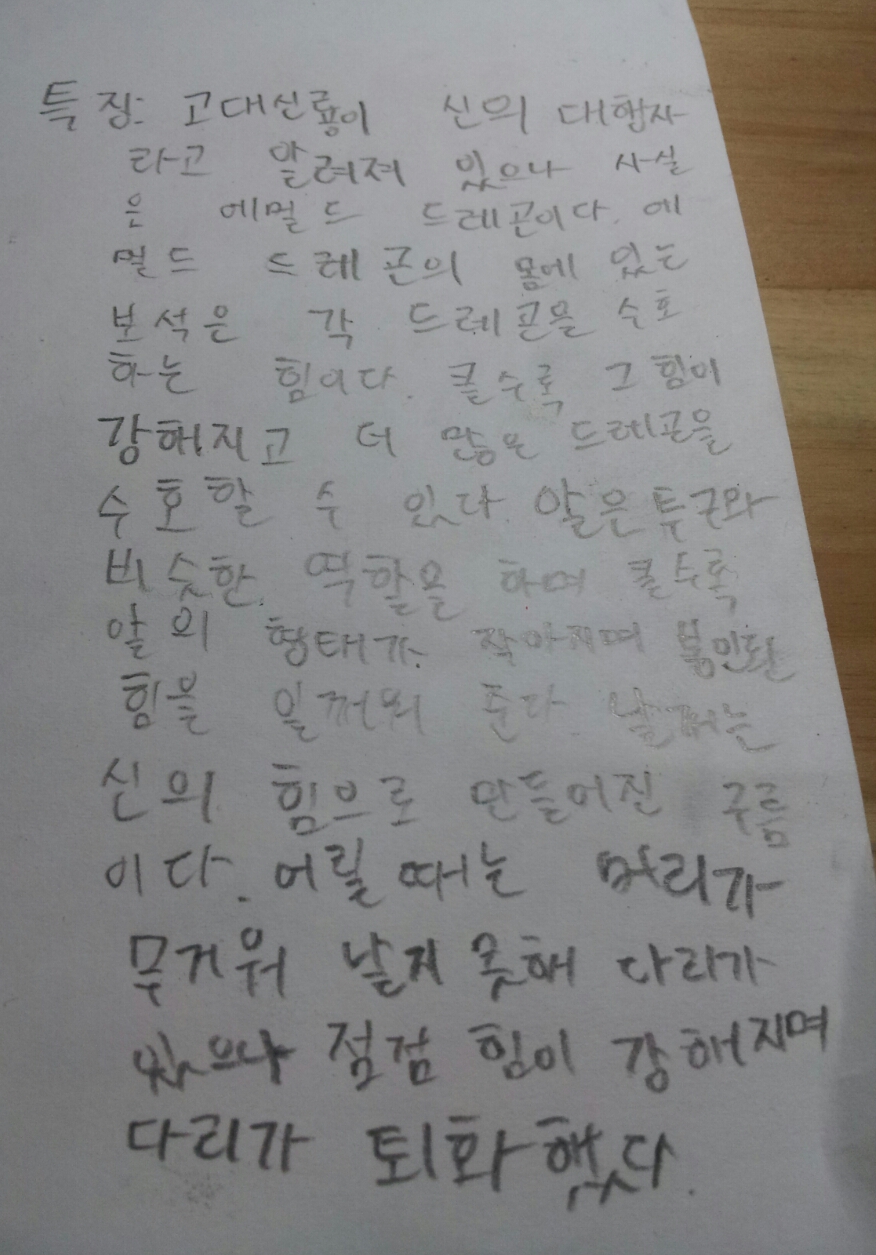 특징: 고대신룡이 신의 대합자
라고 알려져 있으나 사실
은 에멀드 드레곤이다. 에
멀드 드레곤의 몸에 있는
보석은 각 드레곤을 수호
하는 힘이다. 클수록 그 힘이
강해지고 더 많은 드레곤을
수호할 수 있다. 알은 투구와
비슷한 역할을 하며 클수록
알의 형태가 작아지며 봉인된
힘을 일깨워 준다. 날개는
신의 힘으로 만들어진 구름
이다. 어릴 때는 머리가
무거워 날지 못해 다리가
있으나 점점 힘이 강해지며
다리가 퇴화했다.